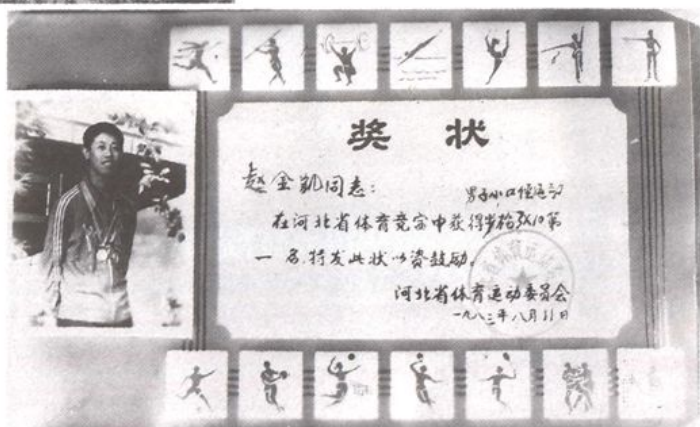 奖状
赵金凯同志：
男子小口径
在河北省体育竞赛中获得步枪3×10第
一名，特发此状以资鼓励。
河北省体育运动委员会
一九八二年八月11日